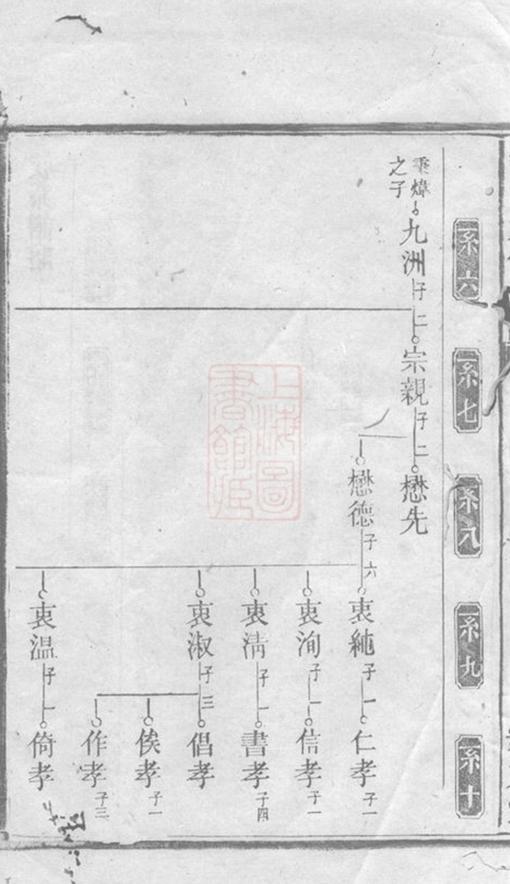 系六
系七
系八
系九
系十
秉煒之子
九洲 子二
宗親 子二
懋先
懋德 子六
衷純 子一
仁孝 子一
衷洵 子一
信孝 子一
衷清 子一
書孝 子四
衷淑 子三
倡孝
俟孝 子一
作孝 子三
衷温 子一
倚孝
上海圖書館藏